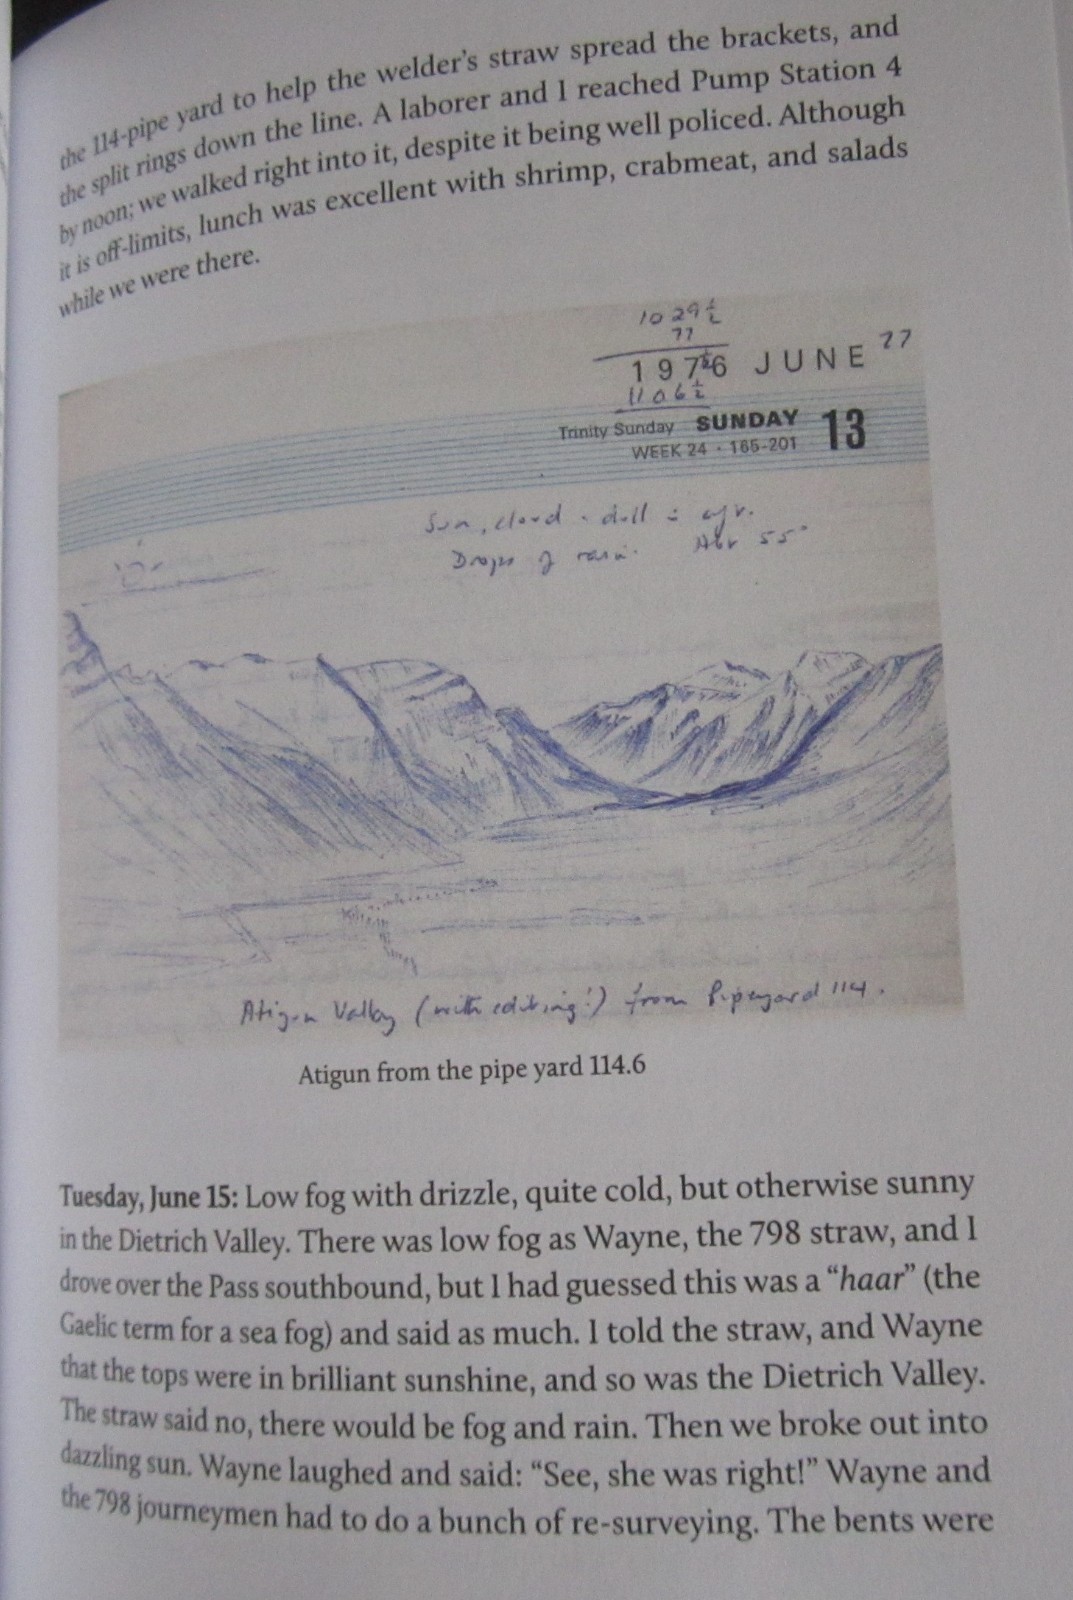 the 114-pipe yard to help the welder's straw spread the brackets, and
the split rings down the line. A laborer and I reached Pump Station 4
by noon; we walked right into it, despite it being well policed. Although
it is off-limits, lunch was excellent with shrimp, crabmeat, and salads
while we were there.
1029½
77
1976 JUNE 77
1106½
Trinity Sunday SUNDAY 13
WEEK 24 · 165-201
Sun, cloud - dull
Drops of rain. 55°
Atigun Valley (with editing!) from Pipeyard 114.
Atigun from the pipe yard 114.6
Tuesday, June 15: Low fog with drizzle, quite cold, but otherwise sunny
in the Dietrich Valley. There was low fog as Wayne, the 798 straw, and I
drove over the Pass southbound, but I had guessed this was a "haar" (the
Gaelic term for a sea fog) and said as much. I told the straw, and Wayne
that the tops were in brilliant sunshine, and so was the Dietrich Valley.
The straw said no, there would be fog and rain. Then we broke out into
dazzling sun. Wayne laughed and said: "See, she was right!" Wayne and
the 798 journeymen had to do a bunch of re-surveying. The bents were